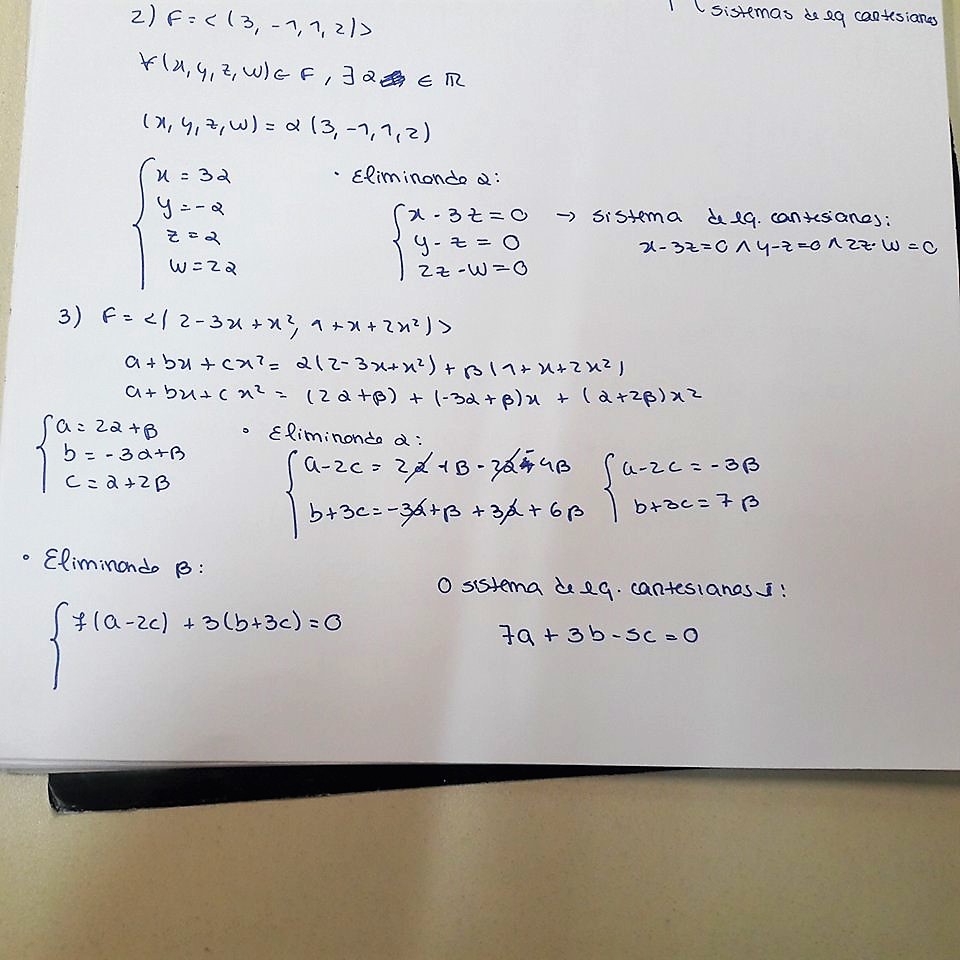 sistemas de eq cartesianas
2) F = < (3, -1, 1, 2) >
∀(x, y, z, w) ∈ F, ∃ α ∈ ℝ
(x, y, z, w) = α (3, -1, 1, 2)
x = 3α
y = -α
z = α
w = 2α
• Eliminando α:
x - 3z = 0 → sistema de eq. cartesianas:
y - z = 0
2z - w = 0
x - 3z = 0 ∧ y - z = 0 ∧ 2z - w = 0
3) F = < ( 2 - 3x + x², 1 + x + 2x² ) >
a + bx + cx² = α(2 - 3x + x²) + β(1 + x + 2x²)
a + bx + cx² = (2α + β) + (-3α + β)x + (α + 2β)x²
a = 2α + β
b = -3α + β
c = α + 2β
• Eliminando α:
a - 2c = 2α + β - 2α - 4β
b + 3c = -3α + β + 3α + 6β
a - 2c = -3β
b + 3c = 7β
• Eliminando β:
7(a - 2c) + 3(b + 3c) = 0
O sistema de eq. cartesianas é:
7a + 3b - 5c = 0